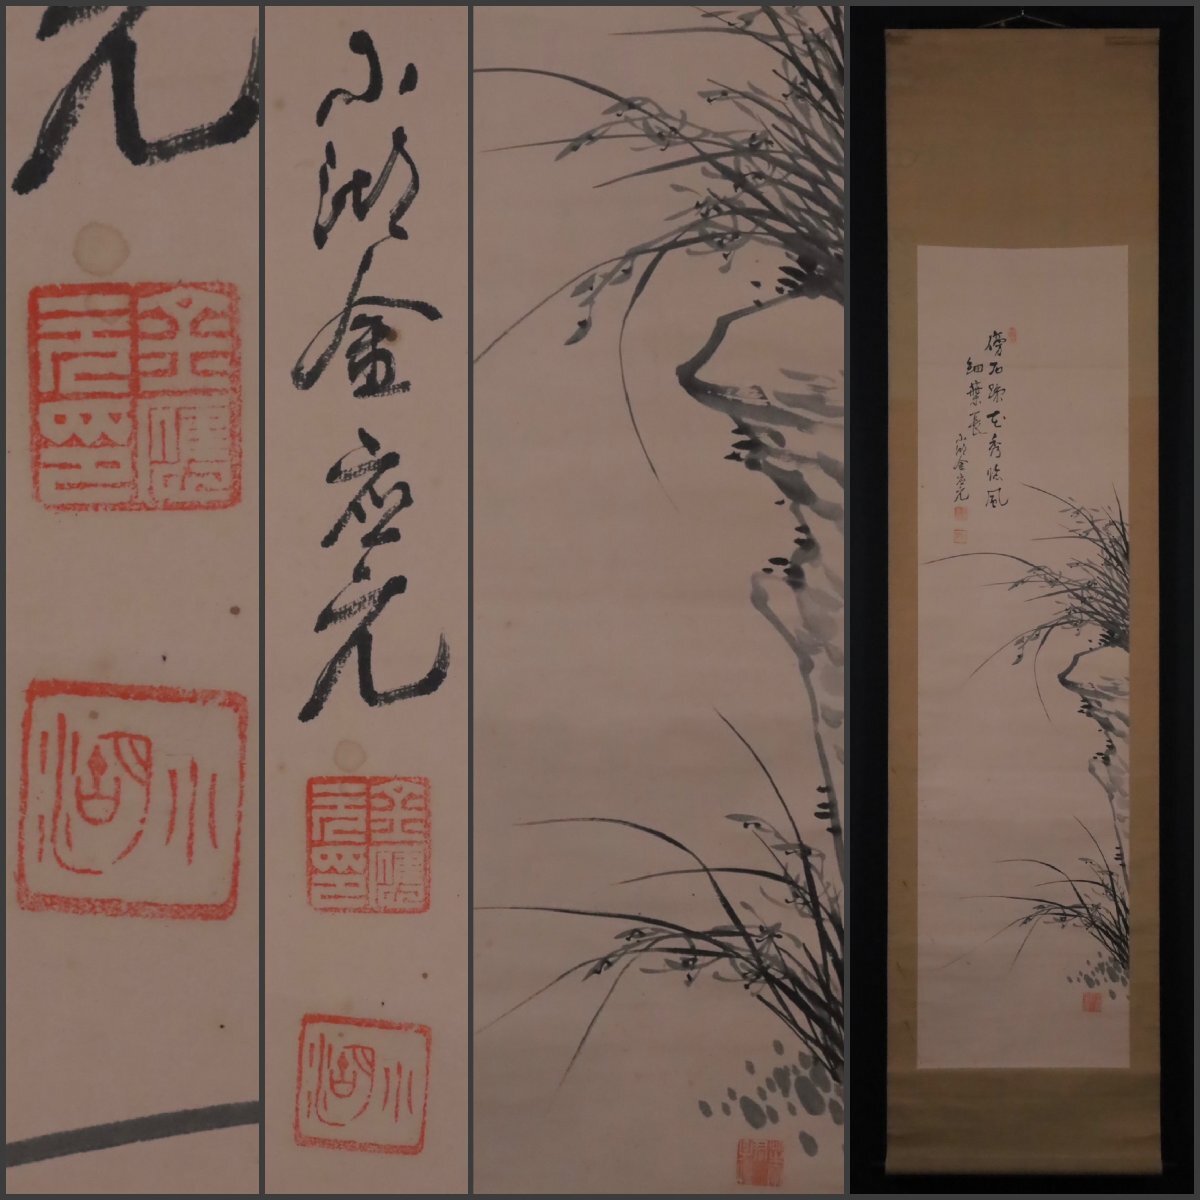 元
金應元印
小湖
小湖金應元
金應元印
小湖
傍石疎花秀臨風
細葉長
小湖金應元